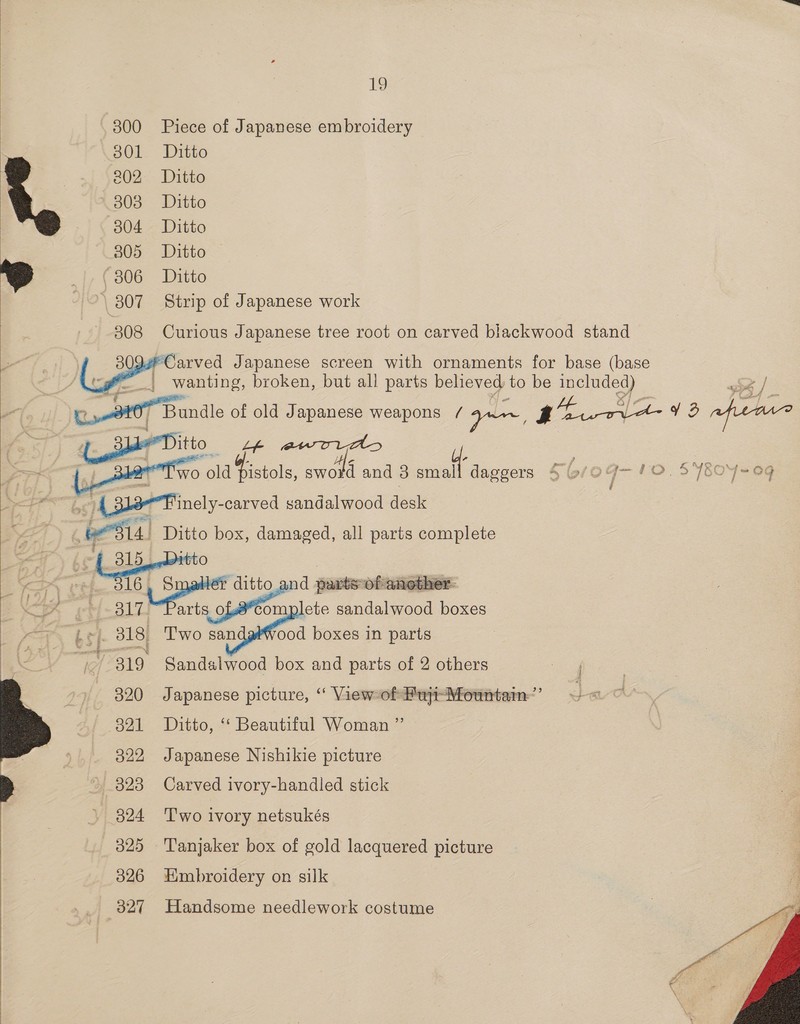 19
300 Piece of Japanese embroidery
301 Ditto
302 Ditto
303 Ditto
304 Ditto
305 Ditto
306 Ditto
307 Strip of Japanese work
308 Curious Japanese tree root on carved blackwood stand
309 Carved Japanese screen with ornaments for base (base
wanting, broken, but all parts believed to be included)
310 Bundle of old Japanese weapons 1 gun, 4 swords & 3 spears
311 Ditto 4 swords
312 Two old pistols, sword and 3 small daggers
313 Finely-carved sandalwood desk
314 Ditto box, damaged, all parts complete
315 Ditto
316 Smaller ditto and parts of another
317 Parts of 3 complete sandalwood boxes
318 Two sandalwood boxes in parts
319 Sandalwood box and parts of 2 others
320 Japanese picture, “ View of Fuji Mountain ”
321 Ditto, “ Beautiful Woman ”
322 Japanese Nishikie picture
323 Carved ivory-handled stick
324 Two ivory netsukés
325 Tanjaker box of gold lacquered picture
326 Embroidery on silk
327 Handsome needlework costume